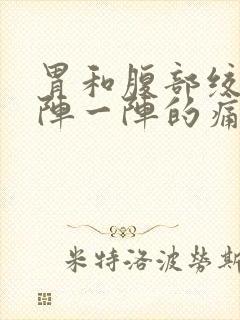 胃和腹部绞
陣一陣的痛
米特洛波勞斯